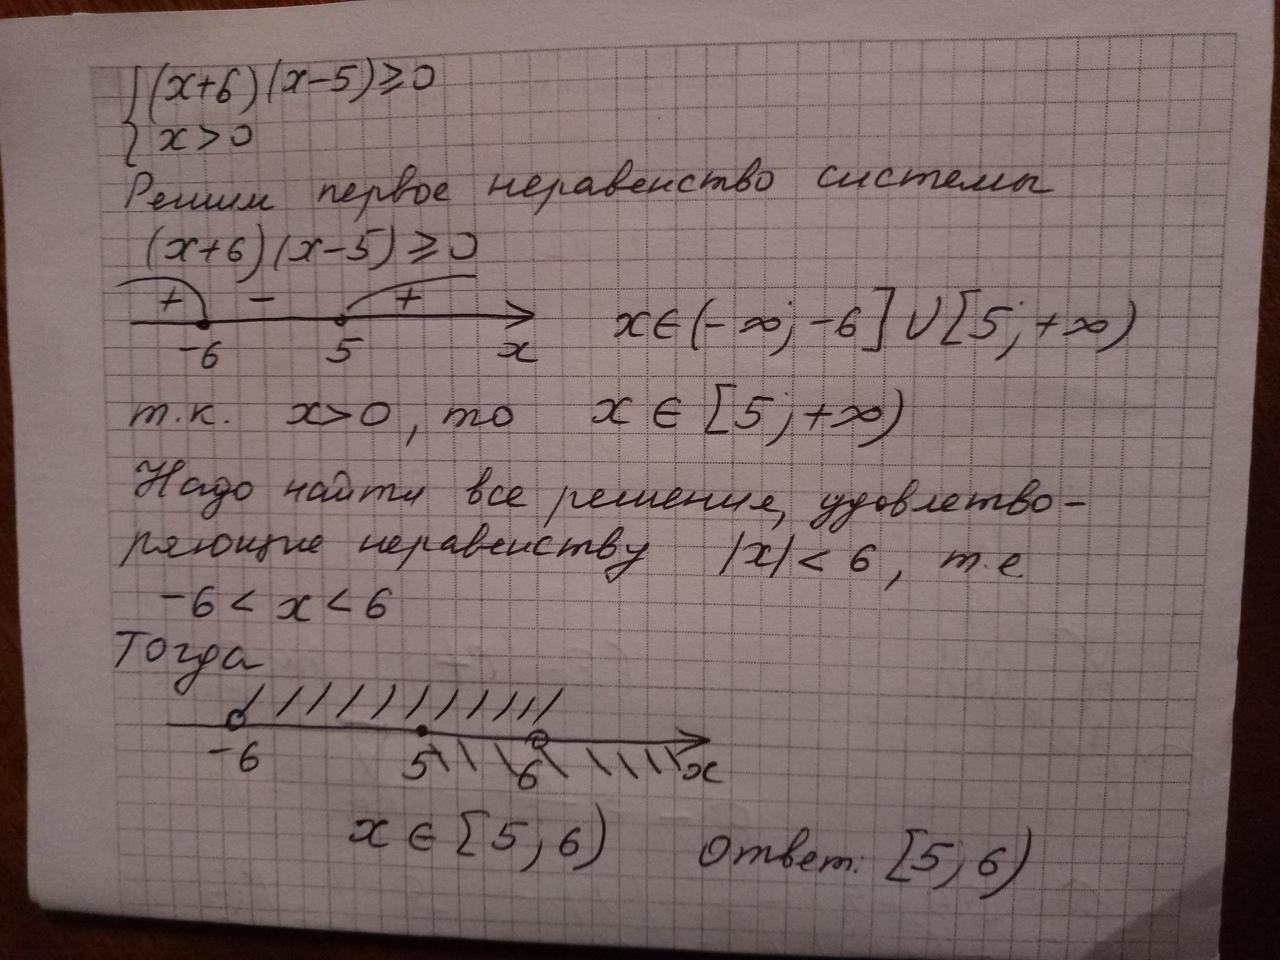 {(x+6)(x-5)⩾0
{x>0
Решим первое неравенство системы
(x+6)(x-5)⩾0
+ - +
-6 5 x
x∈(-∞;-6]∪[5;+∞)
т.к. x>0, то x∈[5;+∞)
Надо найти все решения, удовлетво-
ряющие неравенству |x|<6, т.е.
-6<x<6
Тогда
-6 5 6 x
x∈[5;6) Ответ: [5;6)